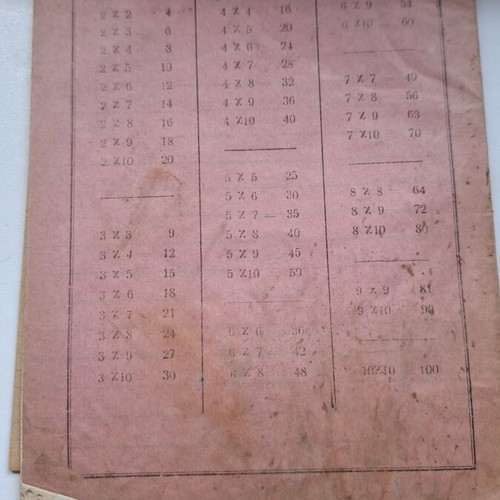 2 X 2 4
2 X 3 6
2 X 4 8
2 X 5 10
2 X 6 12
2 X 7 14
2 X 8 16
2 X 9 18
2 X10 20
3 X 3 9
3 X 4 12
3 X 5 15
3 X 6 18
3 X 7 21
3 X 8 24
3 X 9 27
3 X10 30
4 X 4 16
4 X 5 20
4 X 6 24
4 X 7 28
4 X 8 32
4 X 9 36
4 X10 40
5 X 5 25
5 X 6 30
5 X 7 — 35
5 X 8 40
5 X 9 45
5 X10 50
6 X 6 36
6 X 7 — 42
6 X 8 48
6 X 9 54
6 X10 60
7 X 7 49
7 X 8 56
7 X 9 63
7 X10 70
8 X 8 64
8 X 9 72
8 X10 80
9 X 9 81
9 X10 90
10X10 100